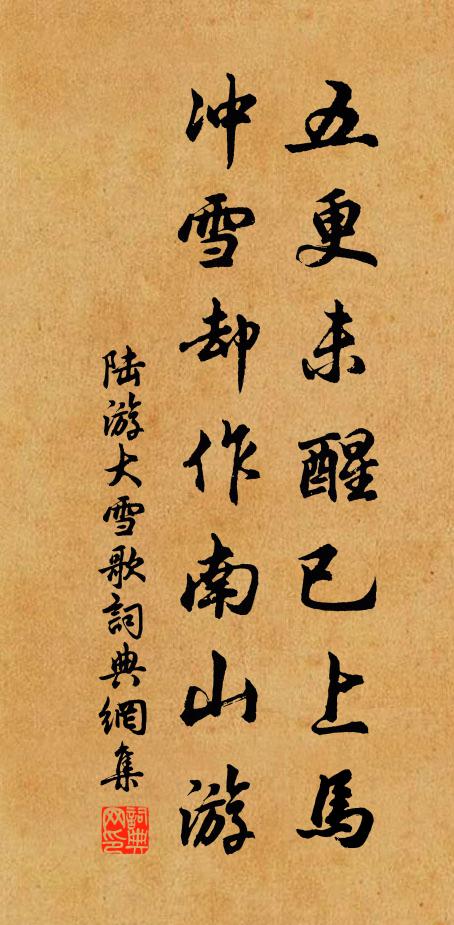 五更未醒已上馬
冲雪却作南山游
陆游大雪歌詞典網集
詞典网印